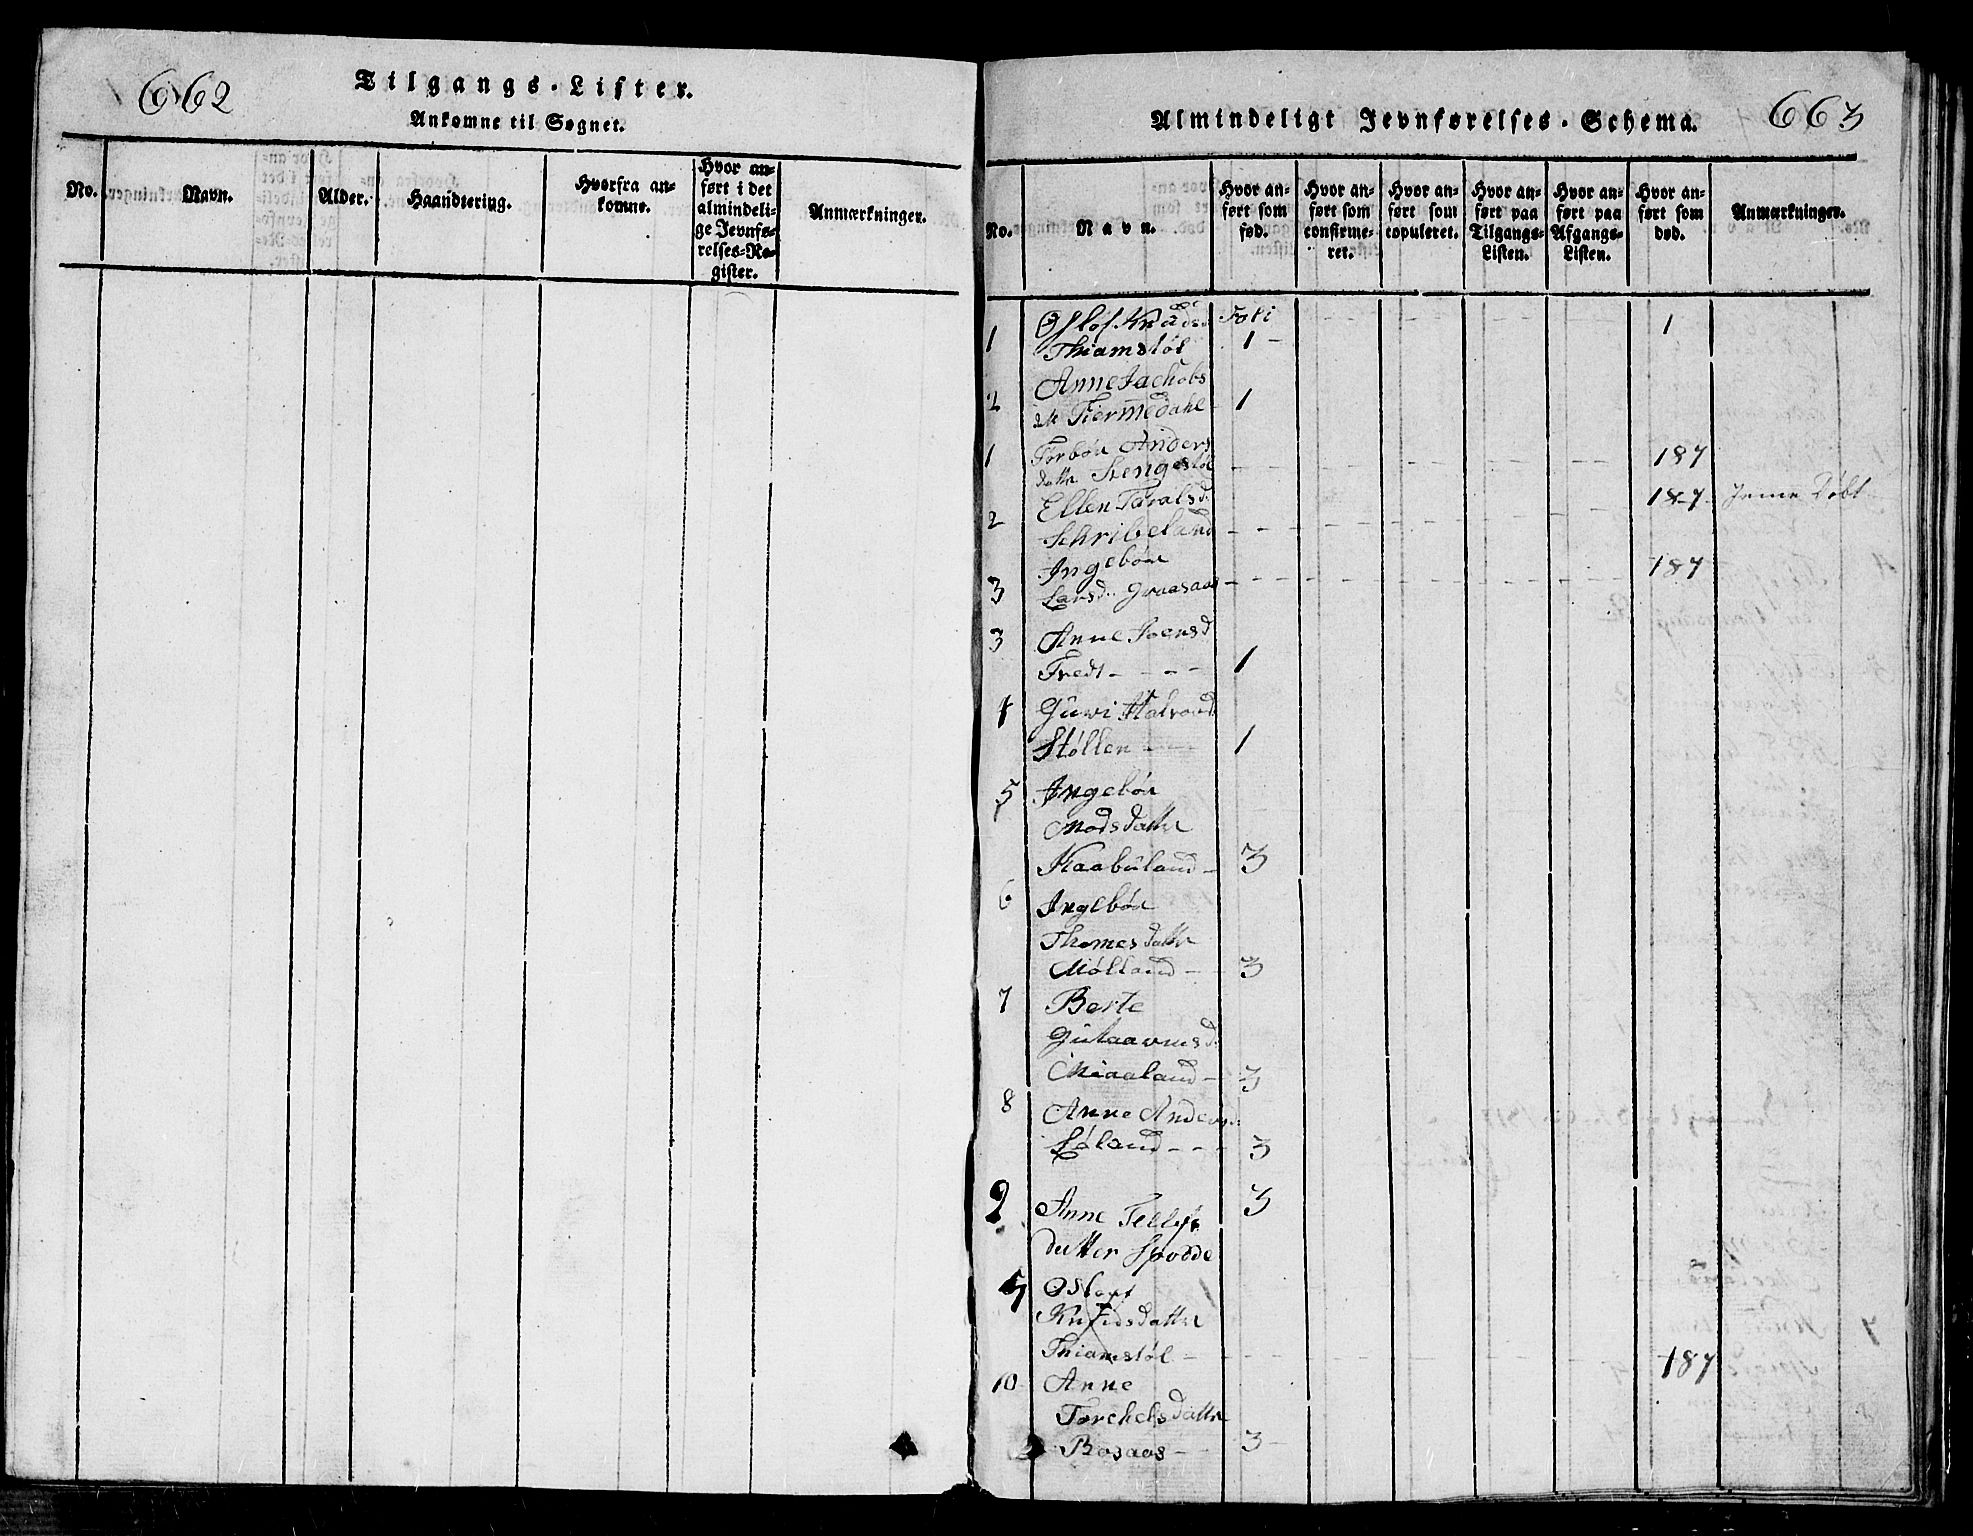 662
Tilgangs-Lister.
Ankomne til Sognet.
No.
Navn.
Alder.
Haandtering.
Hvorfra an-
komne.
Hvor an-
ført i det
almindeli-
ge Jevnfø-
relses-Re-
gister.
Anmærkninger.
Almindeligt Jevnførelses-Schema.
663
No.
Navn.
Hvor an-
ført som
fød.
Hvor an-
ført som
confirme-
ret.
Hvor an-
ført som
copuleret.
Hvor an-
ført paa
Tilgangs-
Listen.
Hvor an-
ført paa
Afgangs-
Listen.
Hvor an-
ført som
død.
Anmærkninger.
1 Knudsd Foli - - - - 1
Thiamstøl 1 -
Anne Jachobs
2 dtt 1
1 Torbør Anders
datter Stengestøl - - - - 187
Ellen Taralsd. 187
2 Schribeland - - - -
Ingebør 187
3 Larsd. Graasaas - - - -
3 Anne Joensd
Fredt - - - - 1
4 Gunvi Halvords
Støllen - - - 1
5 Ingebør
Madsdatter
Kaabuland - 3
6 Ingebør
Thomesdatter
Mølland - - 3
7 Berte
Gulaavmsd.
Miaaland - 3
8 Anne Andersd.
Løland - - - 3
9 Anne Tellefs 3
datter Spodde
Oslout
Knudsdatter
Thiamstøl - - - - 187
10 Anne
Torchelsdatter
Bosaas - - 3 -